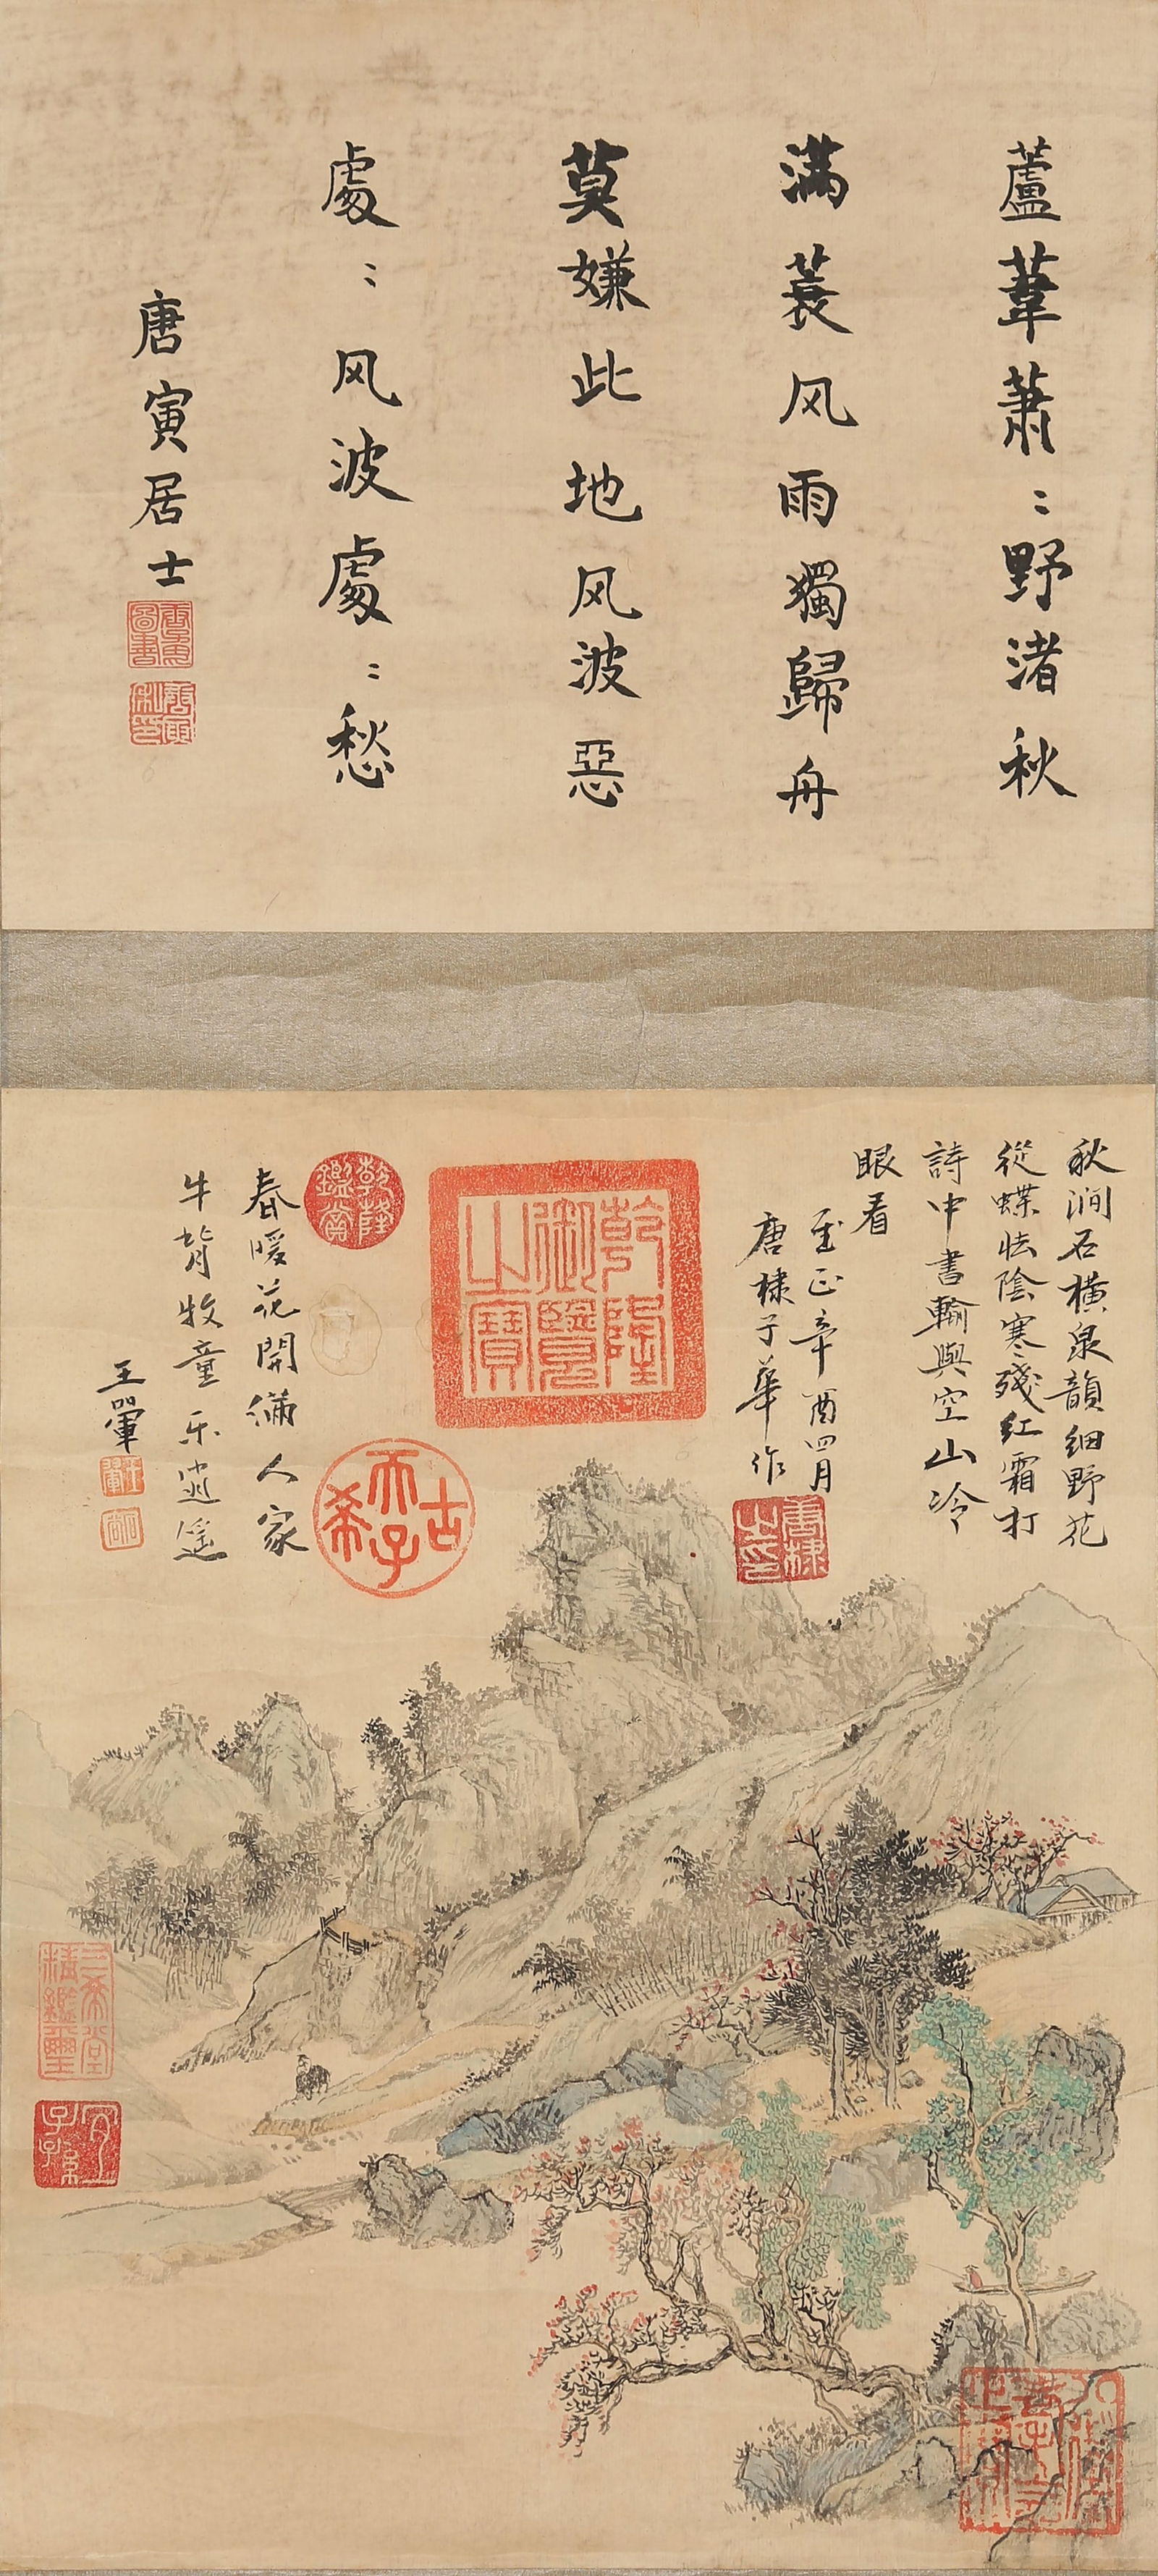 蘆葦蕭〻野渚秋
满蓑风雨獨歸舟
莫嫌此地风波惡
處〻风波處〻愁
唐寅居士
唐寅私印
秋澗石橫泉韻細野花
從蝶怯陰寒殘紅霜打
詩中書輸與空山冷
眼看
至正辛酉四月
唐棣子華作
唐棣之印
乾隆御覽之寶
乾隆鑑賞
古希天子
春暖花開滿人家
牛背牧童乐逍遥
王翬
王翬
三希堂精鑑璽
宜子孫
八徵耄念之寶